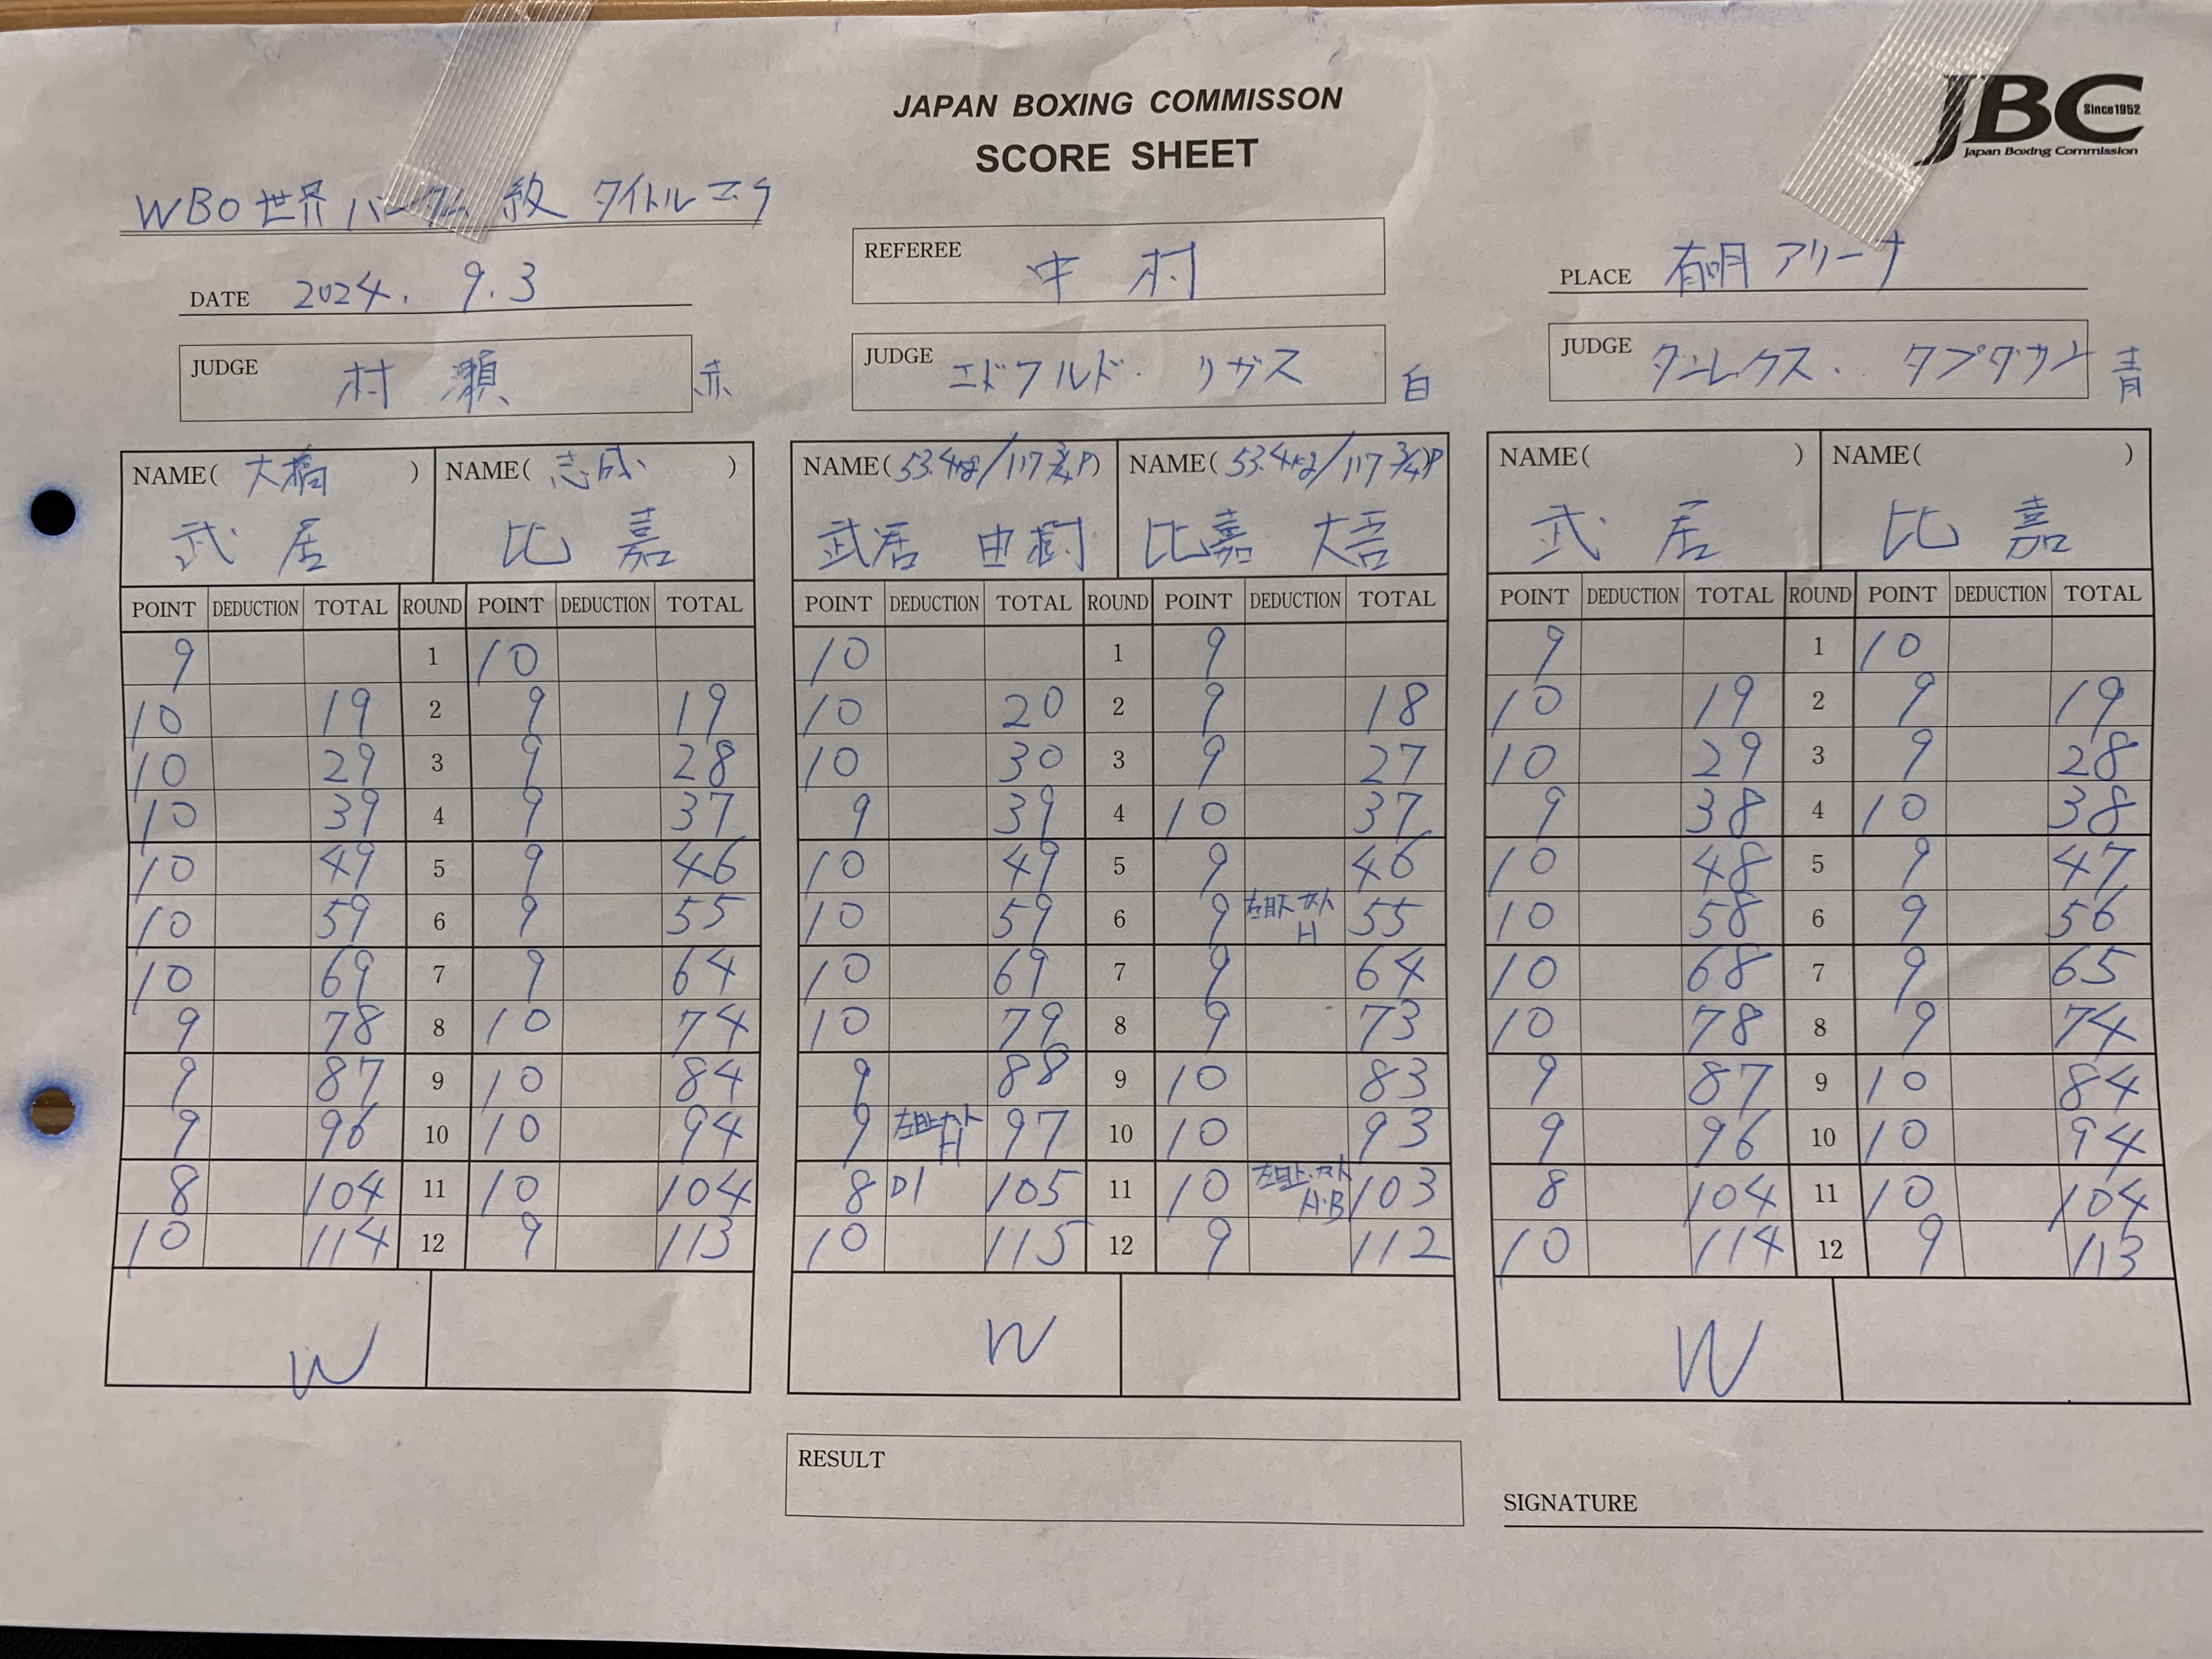 JAPAN BOXING COMMISSON
SCORE SHEET
JBC
Since1952
Japan Boxing Commission
WBO 世界 バンタム 級 タイトルマッチ
DATE 2024. 9. 3
REFEREE 中村
PLACE 有明アリーナ
JUDGE 村瀬 赤
JUDGE エドフルド・リガス 白
JUDGE ダンレクス・タプダサン 青
NAME( 大橋 ) NAME( 志成 ) NAME( 53.4kg/117 3/4 P) NAME( 53.4kg/117 3/4 P) NAME( ) NAME( )
武居 比嘉 武居 由樹 比嘉 大吾 武居 比嘉
POINT DEDUCTION TOTAL ROUND POINT DEDUCTION TOTAL POINT DEDUCTION TOTAL ROUND POINT DEDUCTION TOTAL POINT DEDUCTION TOTAL ROUND POINT DEDUCTION TOTAL
9 1 10 10 1 9 9 1 10
10 19 2 9 19 10 20 2 9 18 10 19 2 9 19
10 29 3 9 28 10 30 3 9 27 10 29 3 9 28
10 39 4 9 37 9 39 4 10 37 9 38 4 10 38
10 49 5 9 46 10 49 5 9 46 10 48 5 9 47
10 59 6 9 55 10 59 6 9 左目下カット H 55 10 58 6 9 56
10 69 7 9 64 10 69 7 9 64 10 68 7 9 65
9 78 8 10 74 10 79 8 9 73 10 78 8 9 74
9 87 9 10 84 9 88 9 10 83 9 87 9 10 84
9 96 10 10 94 9 左目上カット H 97 10 10 93 9 96 10 10 94
8 104 11 10 104 8 D1 105 11 10 左目上カット H・B 103 8 104 11 10 104
10 114 12 9 113 10 115 12 9 112 10 114 12 9 113
W W W
RESULT
SIGNATURE